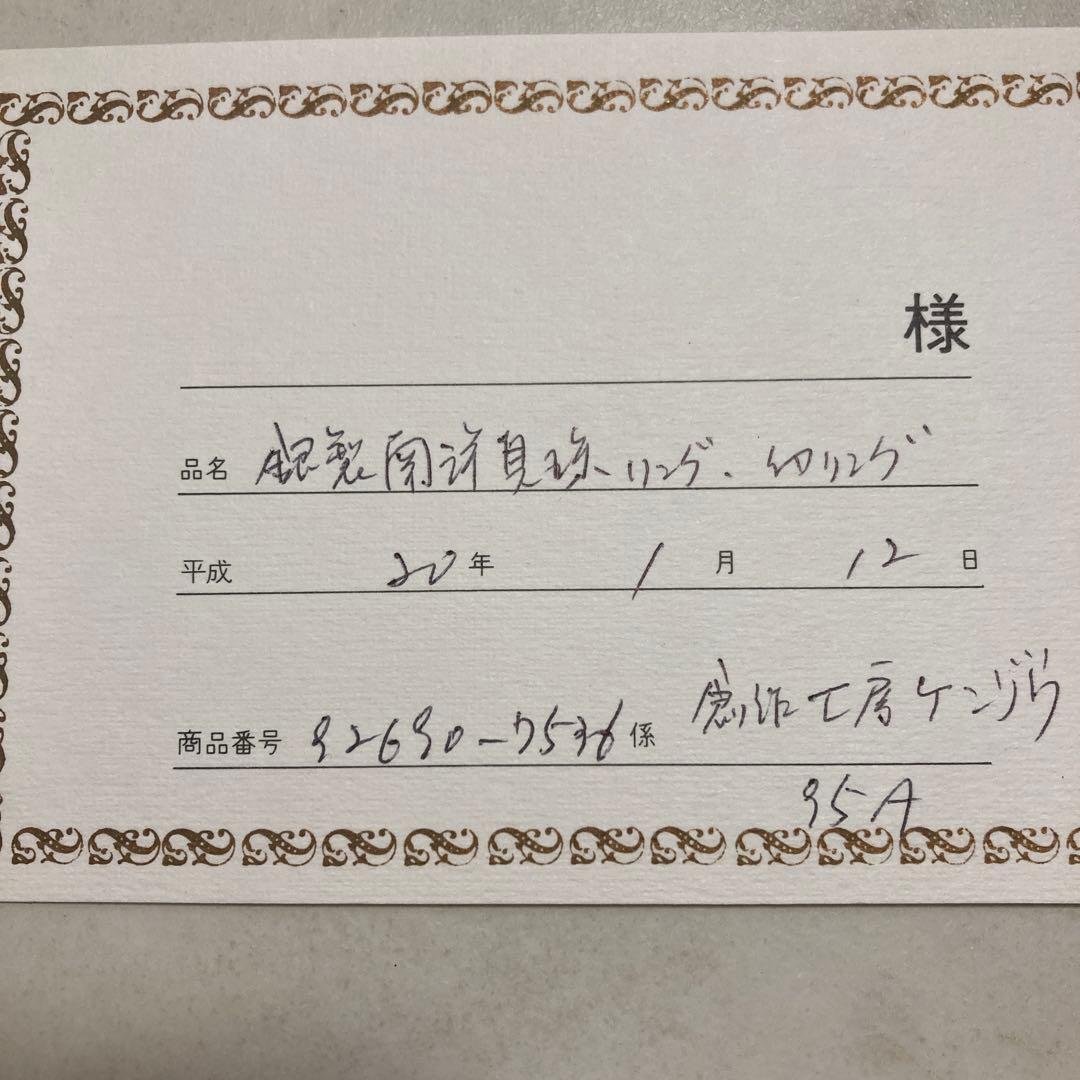 様
品名 銀製南洋真珠リング、幻リング
平成 20年 1月 12日
商品番号 92690-7536 係 創作工房ケンゾウ
95A